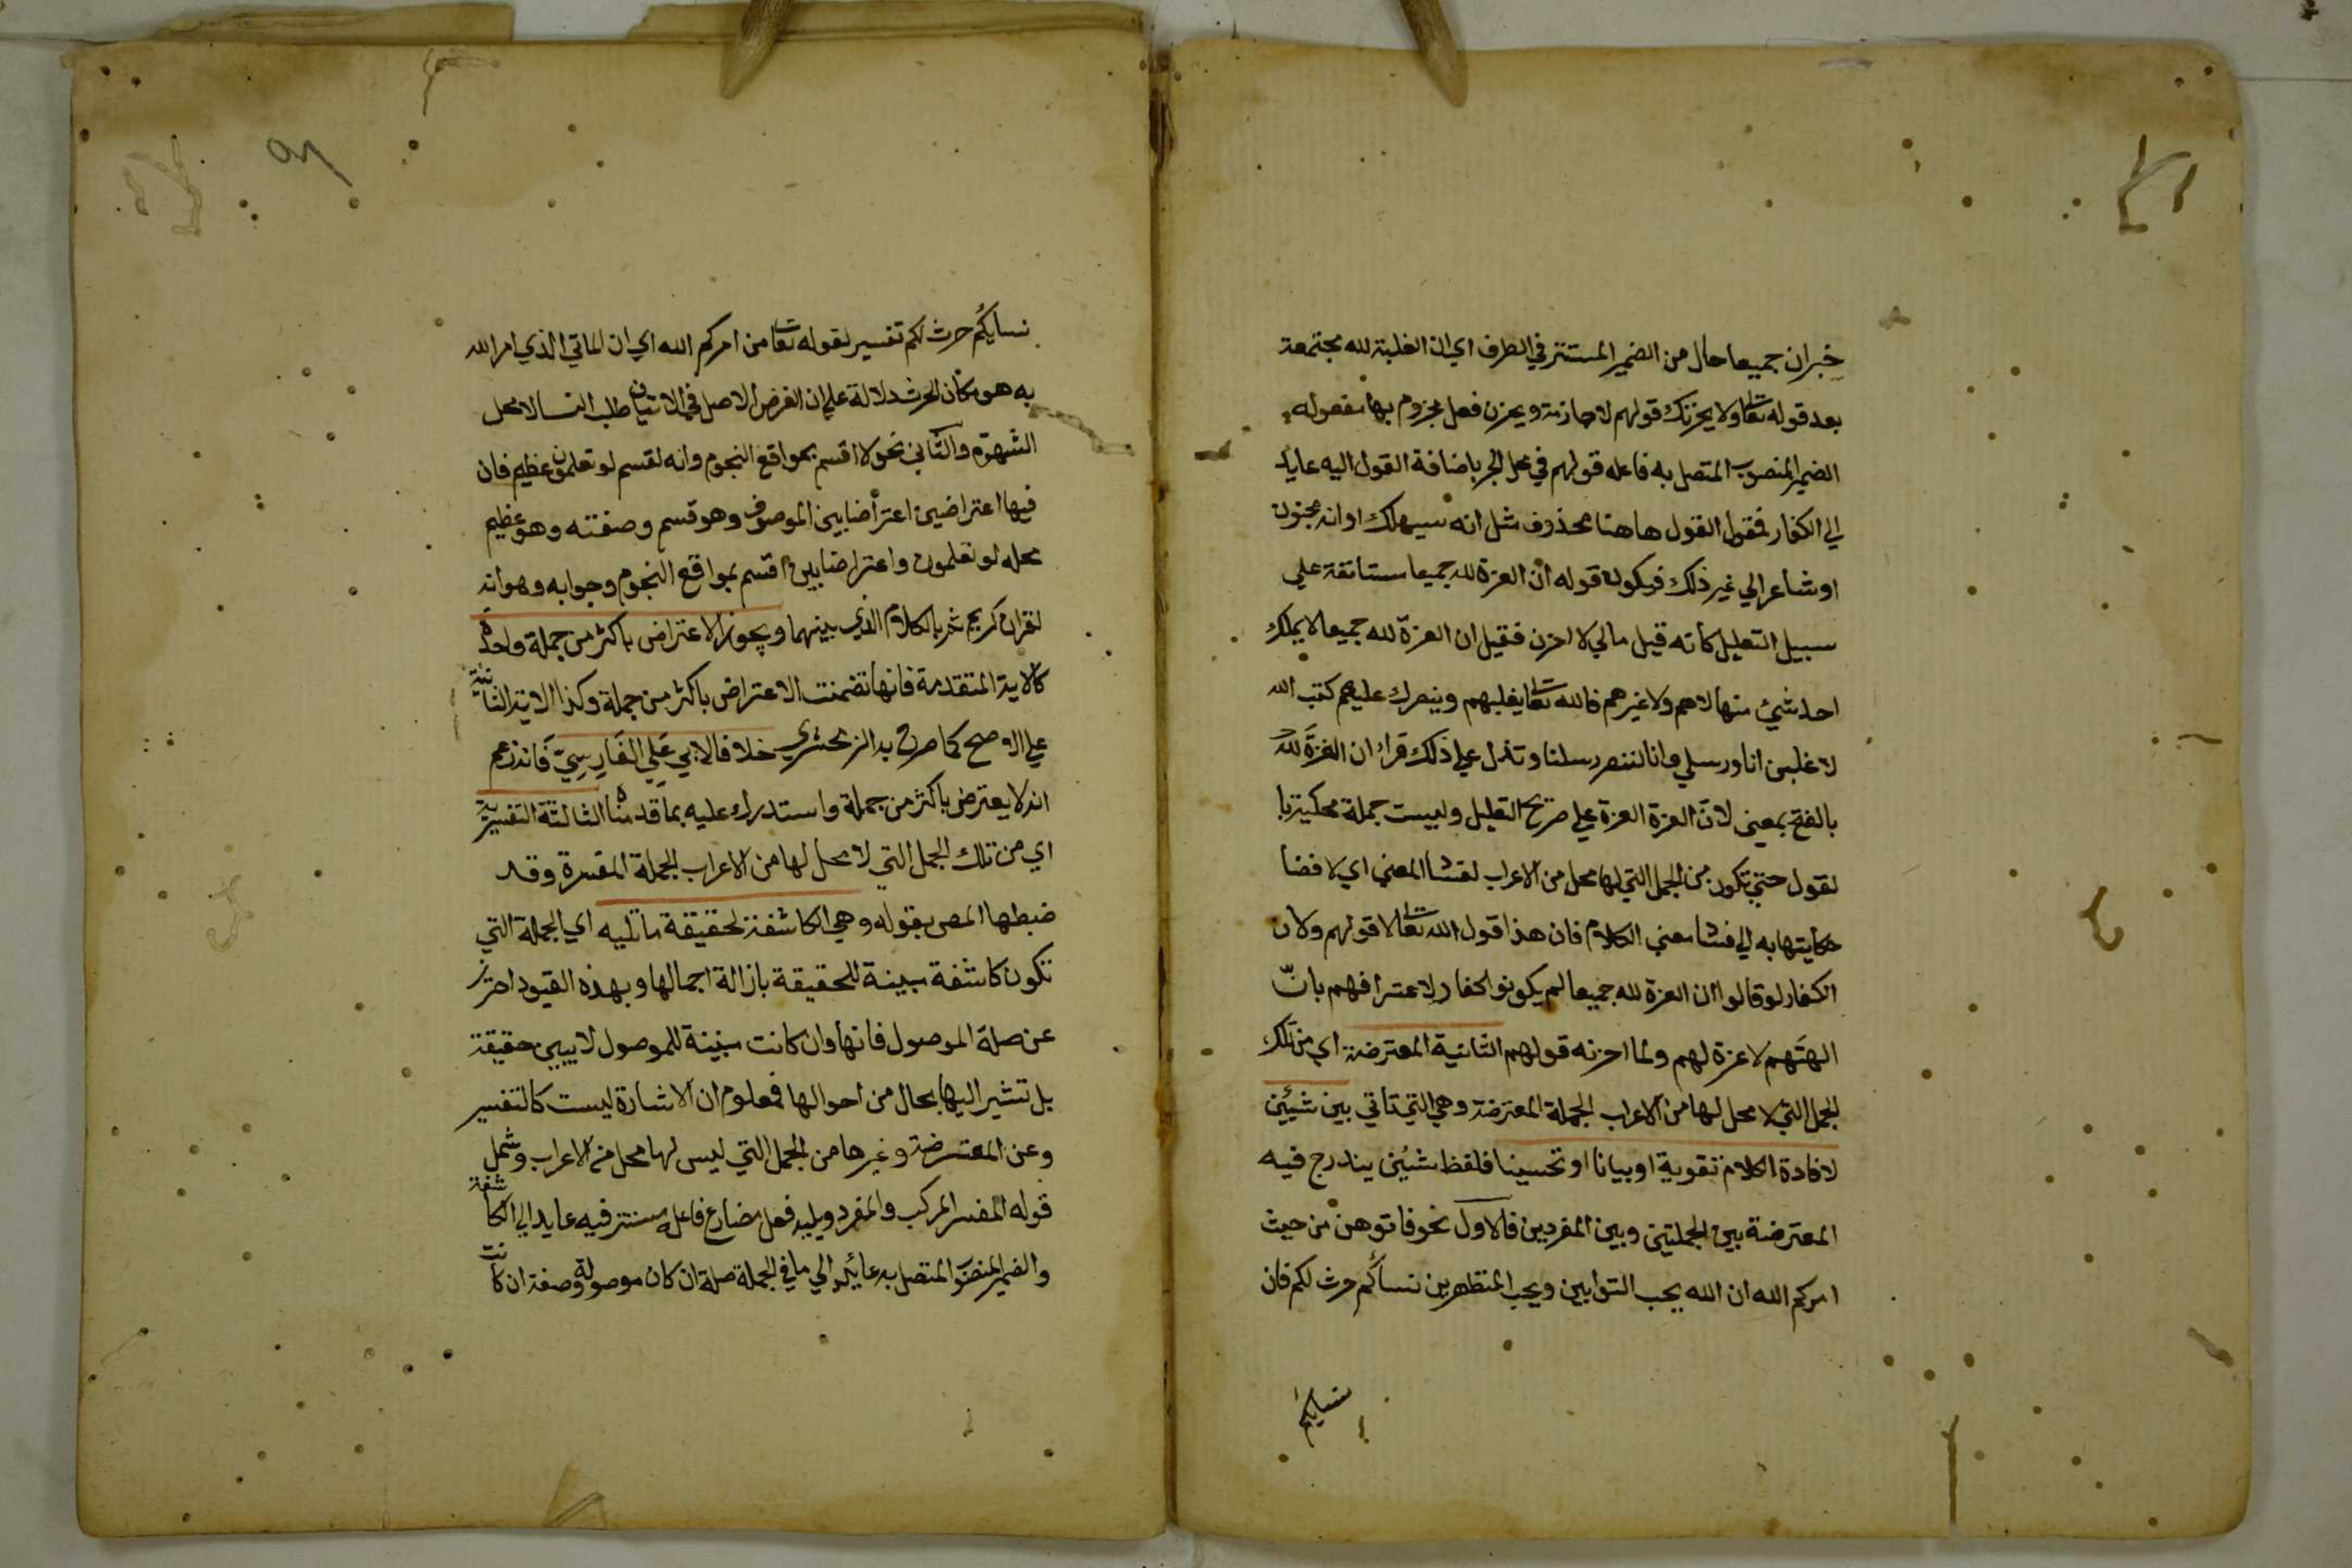 خبر ان جميعا حال من الضمير المستتر في الظرف اي ان الغلبة لله مجتمعة
بعد قوله تعا ولا يحزنك قولهم لا جازمة ويحزن فعل مجزوم بها مفعوله
الضمير المنصوب المتصل به فاعله قولهم في محل الجر باضافة القول اليه عايد
الي الكفار فمقول القول هاهنا محذوف مثل انه سيهلك او انه مجنون
او شاعر الي غير ذلك فيكون قوله ان العزة لله جميعا مستانفة علي
سبيل التعليل كانه قيل مالي لا احزن فقيل ان العزة لله جميعا لا يملك
احد شيئ منها لا هم ولا غيرهم فالله تعا يغلبهم وينصرك عليهم كتب الله
لاغلبن انا ورسلي وانا لننصر رسلنا وتدل علي ذلك قراء ان العزة لله
بالفتح بمعني لان العزة العزة علي صريح التعليل وليست جملة محكية با
لقول حتي تكون من الجمل التي لها محل من الاعراب لفسشا المعني اي لافضا
حكايتها به الي فسشا معني الكلام فان هذا قول الله تعا لا قولهم ولان
الكفار لو قالوا ان العزة لله جميعا لم يكونوا كفار لاعترافهم بانّ
الهتهم لا عزة لهم ولما احزنه قولهم الثانية المعترضة اي من تلك
الجمل التي لا محل لها من الاعراب الجملة المعترضة وهي التي تاتي بين شيئين
لافادة الكلام تقوية او بيانا او تحسينا فلفظ شيئين يندرج فيه
المعترضة بين الجملتين وبين المفردين فالاول نحو فاتوهن من حيث
امركم الله ان الله يحب التوابين ويحب المتطهرين نساكُم حرث لكم فان
نسايكم
نسايكُم حرث لكم تفسير لقوله تعا من امركم الله اي ان الماتي الذي امر الله
به هو مكان الحرث دلالة علي ان الغرض الاصل في الاتيان طلب النسا لا محل
الشهوة والثاني نحو لا اقسم بمواقع النجوم وانه لقسم لو تعلمون عظيم فان
فيها اعتراضين اعتراضا بين الموصوف وهو قسم وصفته وهو عظيم
محله لو تعلمون واعتراضا بين اقسم بمواقع النجوم وجوابه وهو انه
لقران كريم بالكلام الذي بينهما ويجوز الاعتراض باكثر من جملة واحدة
كالاية المتقدمة فانها تضمنت الاعتراض باكثر من جملة وكذا الاية الثانية
علي الاصح كما صرح به الزمحشري خلافا لابي عَلي الفَارِسِيّ فَانه زعم
انه لا يعترض باكثر من جملة واستدرك عليه بما قدمناه الثالثة التفسيرية
اي من تلك الجمل التي لا محل لها من الاعراب الجملة المفسرة وقد
ضبطها المص بقوله وهي الكاشفة لحقيقة ما تليه اي الجملة التي
تكون كاشفة مبينة للحقيقة بازالة اجمالها وبهذه القيود احترز
عن صلة الموصول فانها وان كانت مبينة للموصول لا يبين حقيقة
بل تشير اليها بحال من احوالها فمعلوم ان الاشارة ليست كالتفسير
وعن المعترضة وغيرها من الجمل التي ليس لها محل من الاعراب وشمل
قوله المفسر المركب والمفرد ويليه فعل مضارع فاعله مستتر فيه عايد الي الكاشفة
والضمير المنصوب المتصل به عائد الي ما في الجملة صلة ان كان موصولة وصفة ان كانت